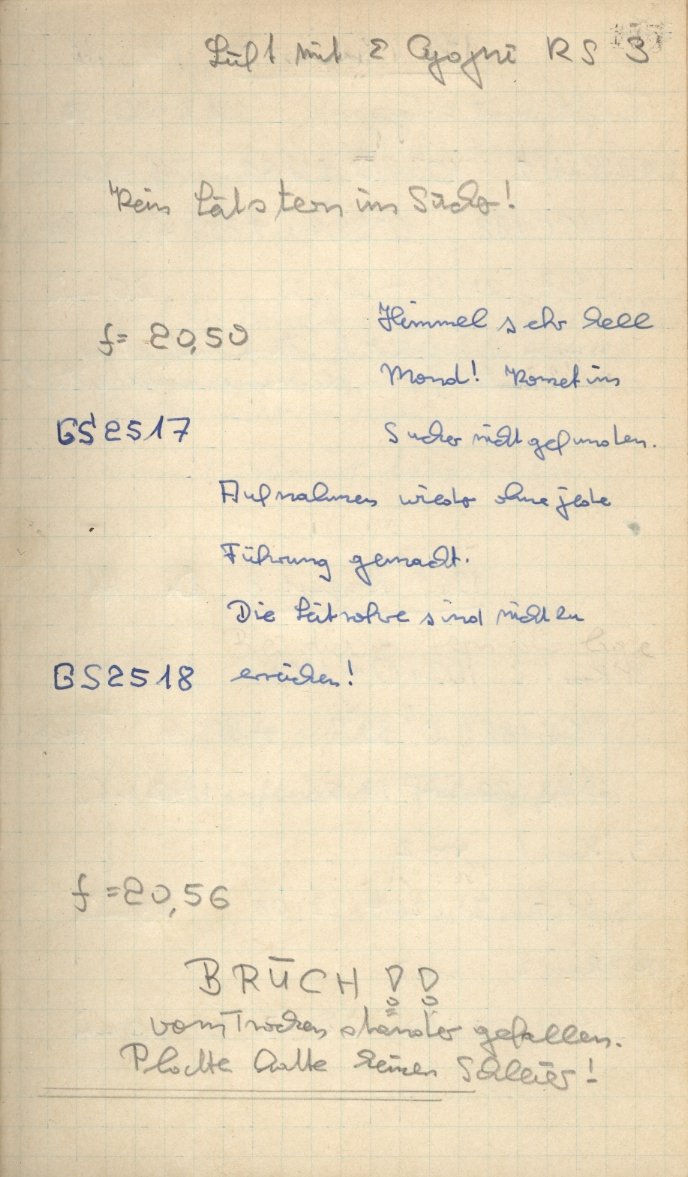 Luft mit ε Cygni RS 3
Kein Leitstern im Sucher!
f= 20,50
Himmel sehr hell
Mond! Komet im
GS2517
Sucher nicht gefunden.
Aufnahmen wieder ohne jede
Führung gemacht.
Die Leitrohre sind nicht zu
GS2518 erreichen!
f =20,56
BRUCH !!
vom Trockenständer gefallen.
Platte hatte keinen Schleier!